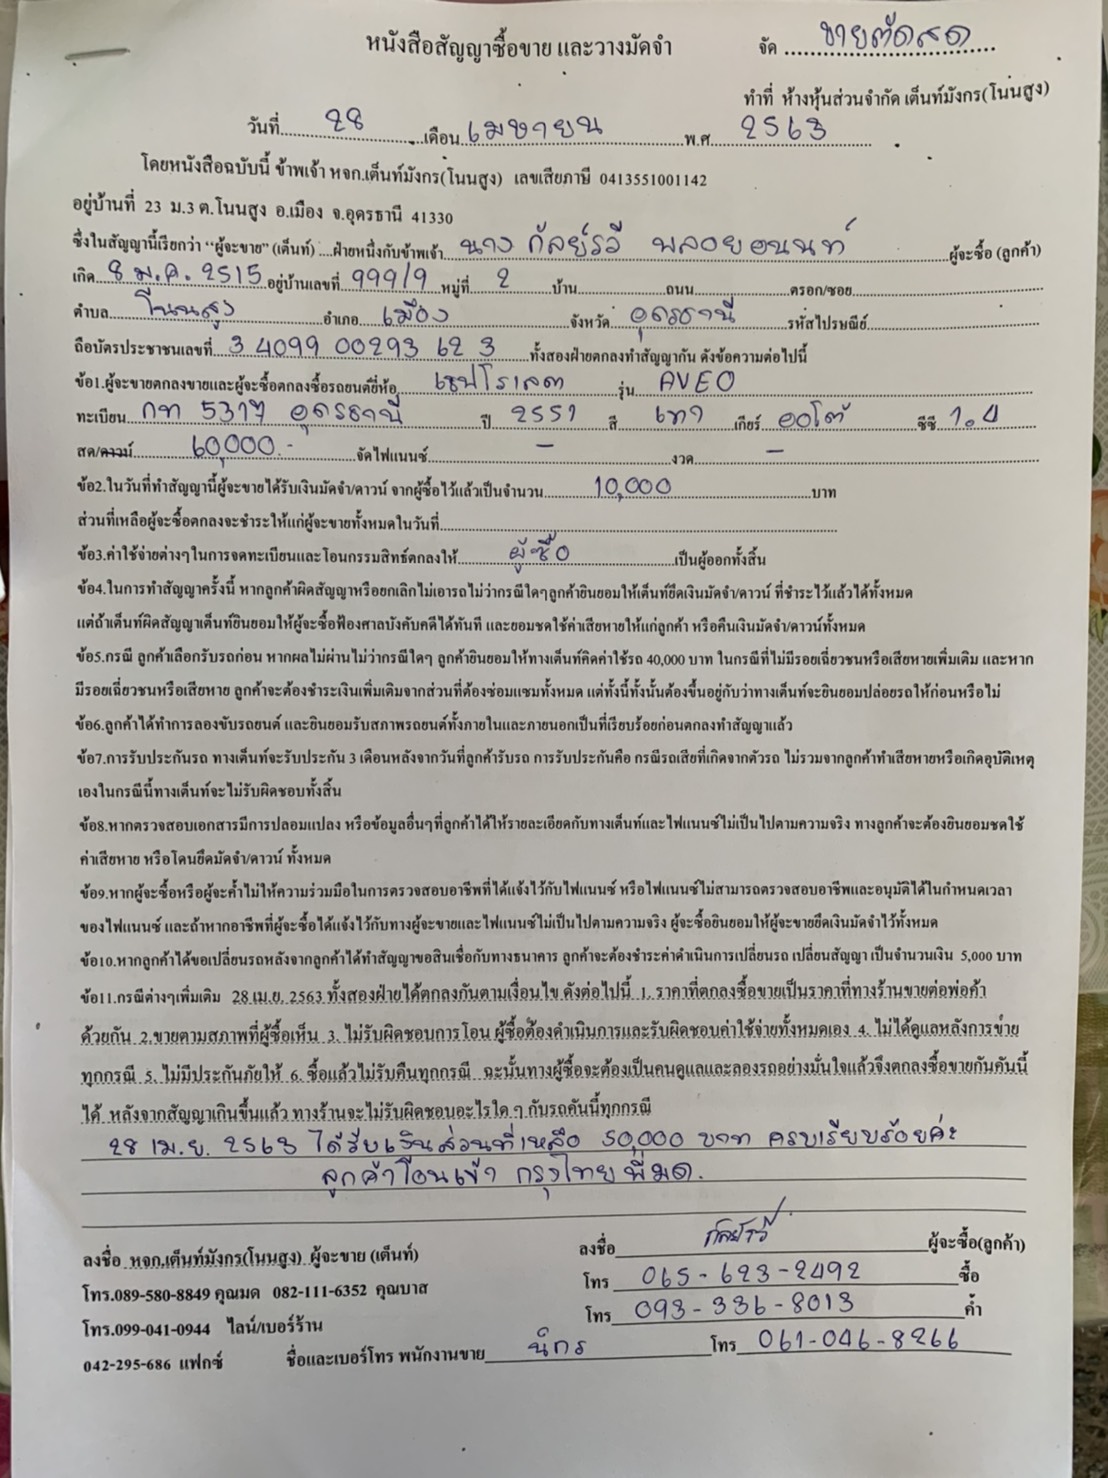 หนังสือสัญญาซื้อขาย และวางมัดจำ
จัด ขายตัดสด
ทำที่ ห้างหุ้นส่วนจำกัด เต็นท์มังกร(โนนสูง)
วันที่ 28 เดือน เมษายน พ.ศ 2563
โดยหนังสือฉบับนี้ ข้าพเจ้า หจก.เต็นท์มังกร(โนนสูง) เลขเสียภาษี 0413551001142
อยู่บ้านที่ 23 ม.3 ต.โนนสูง อ.เมือง จ.อุดรธานี 41330
ซึ่งในสัญญานี้เรียกว่า "ผู้จะขาย" (เต็นท์) ....ฝ่ายหนึ่งกับข้าพเจ้า นาง กัลย์รวี พลอยอนนท์ ผู้จะซื้อ (ลูกค้า)
เกิด 8 ม.ค. 2515 อยู่บ้านเลขที่ 999/9 หมู่ที่ 2 บ้าน ถนน ตรอก/ซอย
ตำบล โนนสูง อำเภอ เมือง จังหวัด อุดรธานี รหัสไปรษณีย์
ถือบัตรประชาชนเลขที่ 3 4099 00293 62 3 ทั้งสองฝ่ายตกลงทำสัญญากัน ดังข้อความต่อไปนี้
ข้อ1.ผู้จะขายตกลงขายและผู้จะซื้อตกลงซื้อรถยนต์ยี่ห้อ เชฟโรเลต รุ่น AVEO
ทะเบียน กท 5317 อุดรธานี ปี 2551 สี เทา เกียร์ ออโต้ ซีซี 1.4
สด/ดาวน์ 60,000.- จัดไฟแนนซ์ - งวด -
ข้อ2.ในวันที่ทำสัญญานี้ผู้จะขายได้รับเงินมัดจำ/ดาวน์ จากผู้ซื้อไว้แล้วเป็นจำนวน 10,000 บาท
ส่วนที่เหลือผู้จะซื้อตกลงจะชำระให้แก่ผู้จะขายทั้งหมดในวันที่
ข้อ3.ค่าใช้จ่ายต่างๆในการจดทะเบียนและโอนกรรมสิทธิ์ตกลงให้ ผู้ซื้อ เป็นผู้ออกทั้งสิ้น
ข้อ4.ในการทำสัญญาครั้งนี้ หากลูกค้าผิดสัญญาหรือยกเลิกไม่เอารถไม่ว่ากรณีใดๆลูกค้ายินยอมให้เต็นท์ยึดเงินมัดจำ/ดาวน์ ที่ชำระไว้แล้วได้ทั้งหมด
แต่ถ้าเต็นท์ผิดสัญญาเต็นท์ยินยอมให้ผู้จะซื้อฟ้องศาลบังคับคดีได้ทันที และยอมชดใช้ค่าเสียหายให้แก่ลูกค้า หรือคืนเงินมัดจำ/ดาวน์ทั้งหมด
ข้อ5.กรณี ลูกค้าเลือกรับรถก่อน หากผลไม่ผ่านไม่ว่ากรณีใดๆ ลูกค้ายินยอมให้ทางเต็นท์คิดค่าใช้รถ 40,000 บาท ในกรณีที่ไม่มีรอยเฉี่ยวชนหรือเสียหายเพิ่มเติม และหาก
มีรอยเฉี่ยวชนหรือเสียหาย ลูกค้าจะต้องชำระเงินเพิ่มเติมจากส่วนที่ต้องซ่อมแซมทั้งหมด แต่ทั้งนี้ทั้งนั้นต้องขึ้นอยู่กับว่าทางเต็นท์จะยินยอมปล่อยรถให้ก่อนหรือไม่
ข้อ6.ลูกค้าได้ทำการลองขับรถยนต์ และยินยอมรับสภาพรถยนต์ทั้งภายในและภายนอกเป็นที่เรียบร้อยก่อนตกลงทำสัญญาแล้ว
ข้อ7.การรับประกันรถ ทางเต็นท์จะรับประกัน 3 เดือนหลังจากวันที่ลูกค้ารับรถ การรับประกันคือ กรณีรถเสียที่เกิดจากตัวรถ ไม่รวมจากลูกค้าทำเสียหายหรือเกิดอุบัติเหตุ
เองในกรณีนี้ทางเต็นท์จะไม่รับผิดชอบทั้งสิ้น
ข้อ8.หากตรวจสอบเอกสารมีการปลอมแปลง หรือข้อมูลอื่นๆที่ลูกค้าได้ให้รายละเอียดกับทางเต็นท์และไฟแนนซ์ไม่เป็นไปตามความจริง ทางลูกค้าจะต้องยินยอมชดใช้
ค่าเสียหาย หรือโดนยึดมัดจำ/ดาวน์ ทั้งหมด
ข้อ9.หากผู้จะซื้อหรือผู้จะค้ำไม่ให้ความร่วมมือในการตรวจสอบอาชีพที่ได้แจ้งไว้กับไฟแนนซ์ หรือไฟแนนซ์ไม่สามารถตรวจสอบอาชีพและอนุมัติได้ในกำหนดเวลา
ของไฟแนนซ์ และถ้าหากอาชีพที่ผู้จะซื้อได้แจ้งไว้กับทางผู้จะขายและไฟแนนซ์ไม่เป็นไปตามความจริง ผู้จะซื้อยินยอมให้ผู้จะขายยึดเงินมัดจำไว้ทั้งหมด
ข้อ10.หากลูกค้าได้ขอเปลี่ยนรถหลังจากลูกค้าได้ทำสัญญาขอสินเชื่อกับทางธนาคาร ลูกค้าจะต้องชำระค่าดำเนินการเปลี่ยนรถ เปลี่ยนสัญญา เป็นจำนวนเงิน 5,000 บาท
ข้อ11.กรณีต่างๆเพิ่มเติม 28 เม.ย. 2563 ทั้งสองฝ่ายได้ตกลงกันตามเงื่อนไข ดังต่อไปนี้ 1. ราคาที่ตกลงซื้อขายเป็นราคาที่ทางร้านขายต่อพ่อค้า
ด้วยกัน 2.ขายตามสภาพที่ผู้ซื้อเห็น 3. ไม่รับผิดชอบการโอน ผู้ซื้อต้องดำเนินการและรับผิดชอบค่าใช้จ่ายทั้งหมดเอง 4. ไม่ได้ดูแลหลังการขาย
ทุกกรณี 5. ไม่มีประกันภัยให้ 6. ซื้อแล้วไม่รับคืนทุกกรณี ฉะนั้นทางผู้ซื้อจะต้องเป็นคนดูแลและลองรถอย่างมั่นใจแล้วจึงตกลงซื้อขายกันคันนี้
ได้ หลังจากสัญญาเกินขึ้นแล้ว ทางร้านจะไม่รับผิดชอบอะไรใด ๆ กับรถคันนี้ทุกกรณี
28 เม.ย. 2563 ได้รับเงินส่วนที่เหลือ 50,000 บาท ครบเรียบร้อยค่ะ
ลูกค้าโอนเข้า กรุงไทยพี่มด.
ลงชื่อ หจก.เต็นท์มังกร(โนนสูง) ผู้จะขาย (เต็นท์)
ลงชื่อ กัลย์รวี ผู้จะซื้อ(ลูกค้า)
โทร.089-580-8849 คุณมด 082-111-6352 คุณบาส
โทร 065-623-2492 ซื้อ
โทร.099-041-0944 ไลน์/เบอร์ร้าน
โทร 093-336-8013 ค้ำ
042-295-686 แฟกซ์ ชื่อและเบอร์โทร พนักงานขาย นิกร โทร 061-046-8266